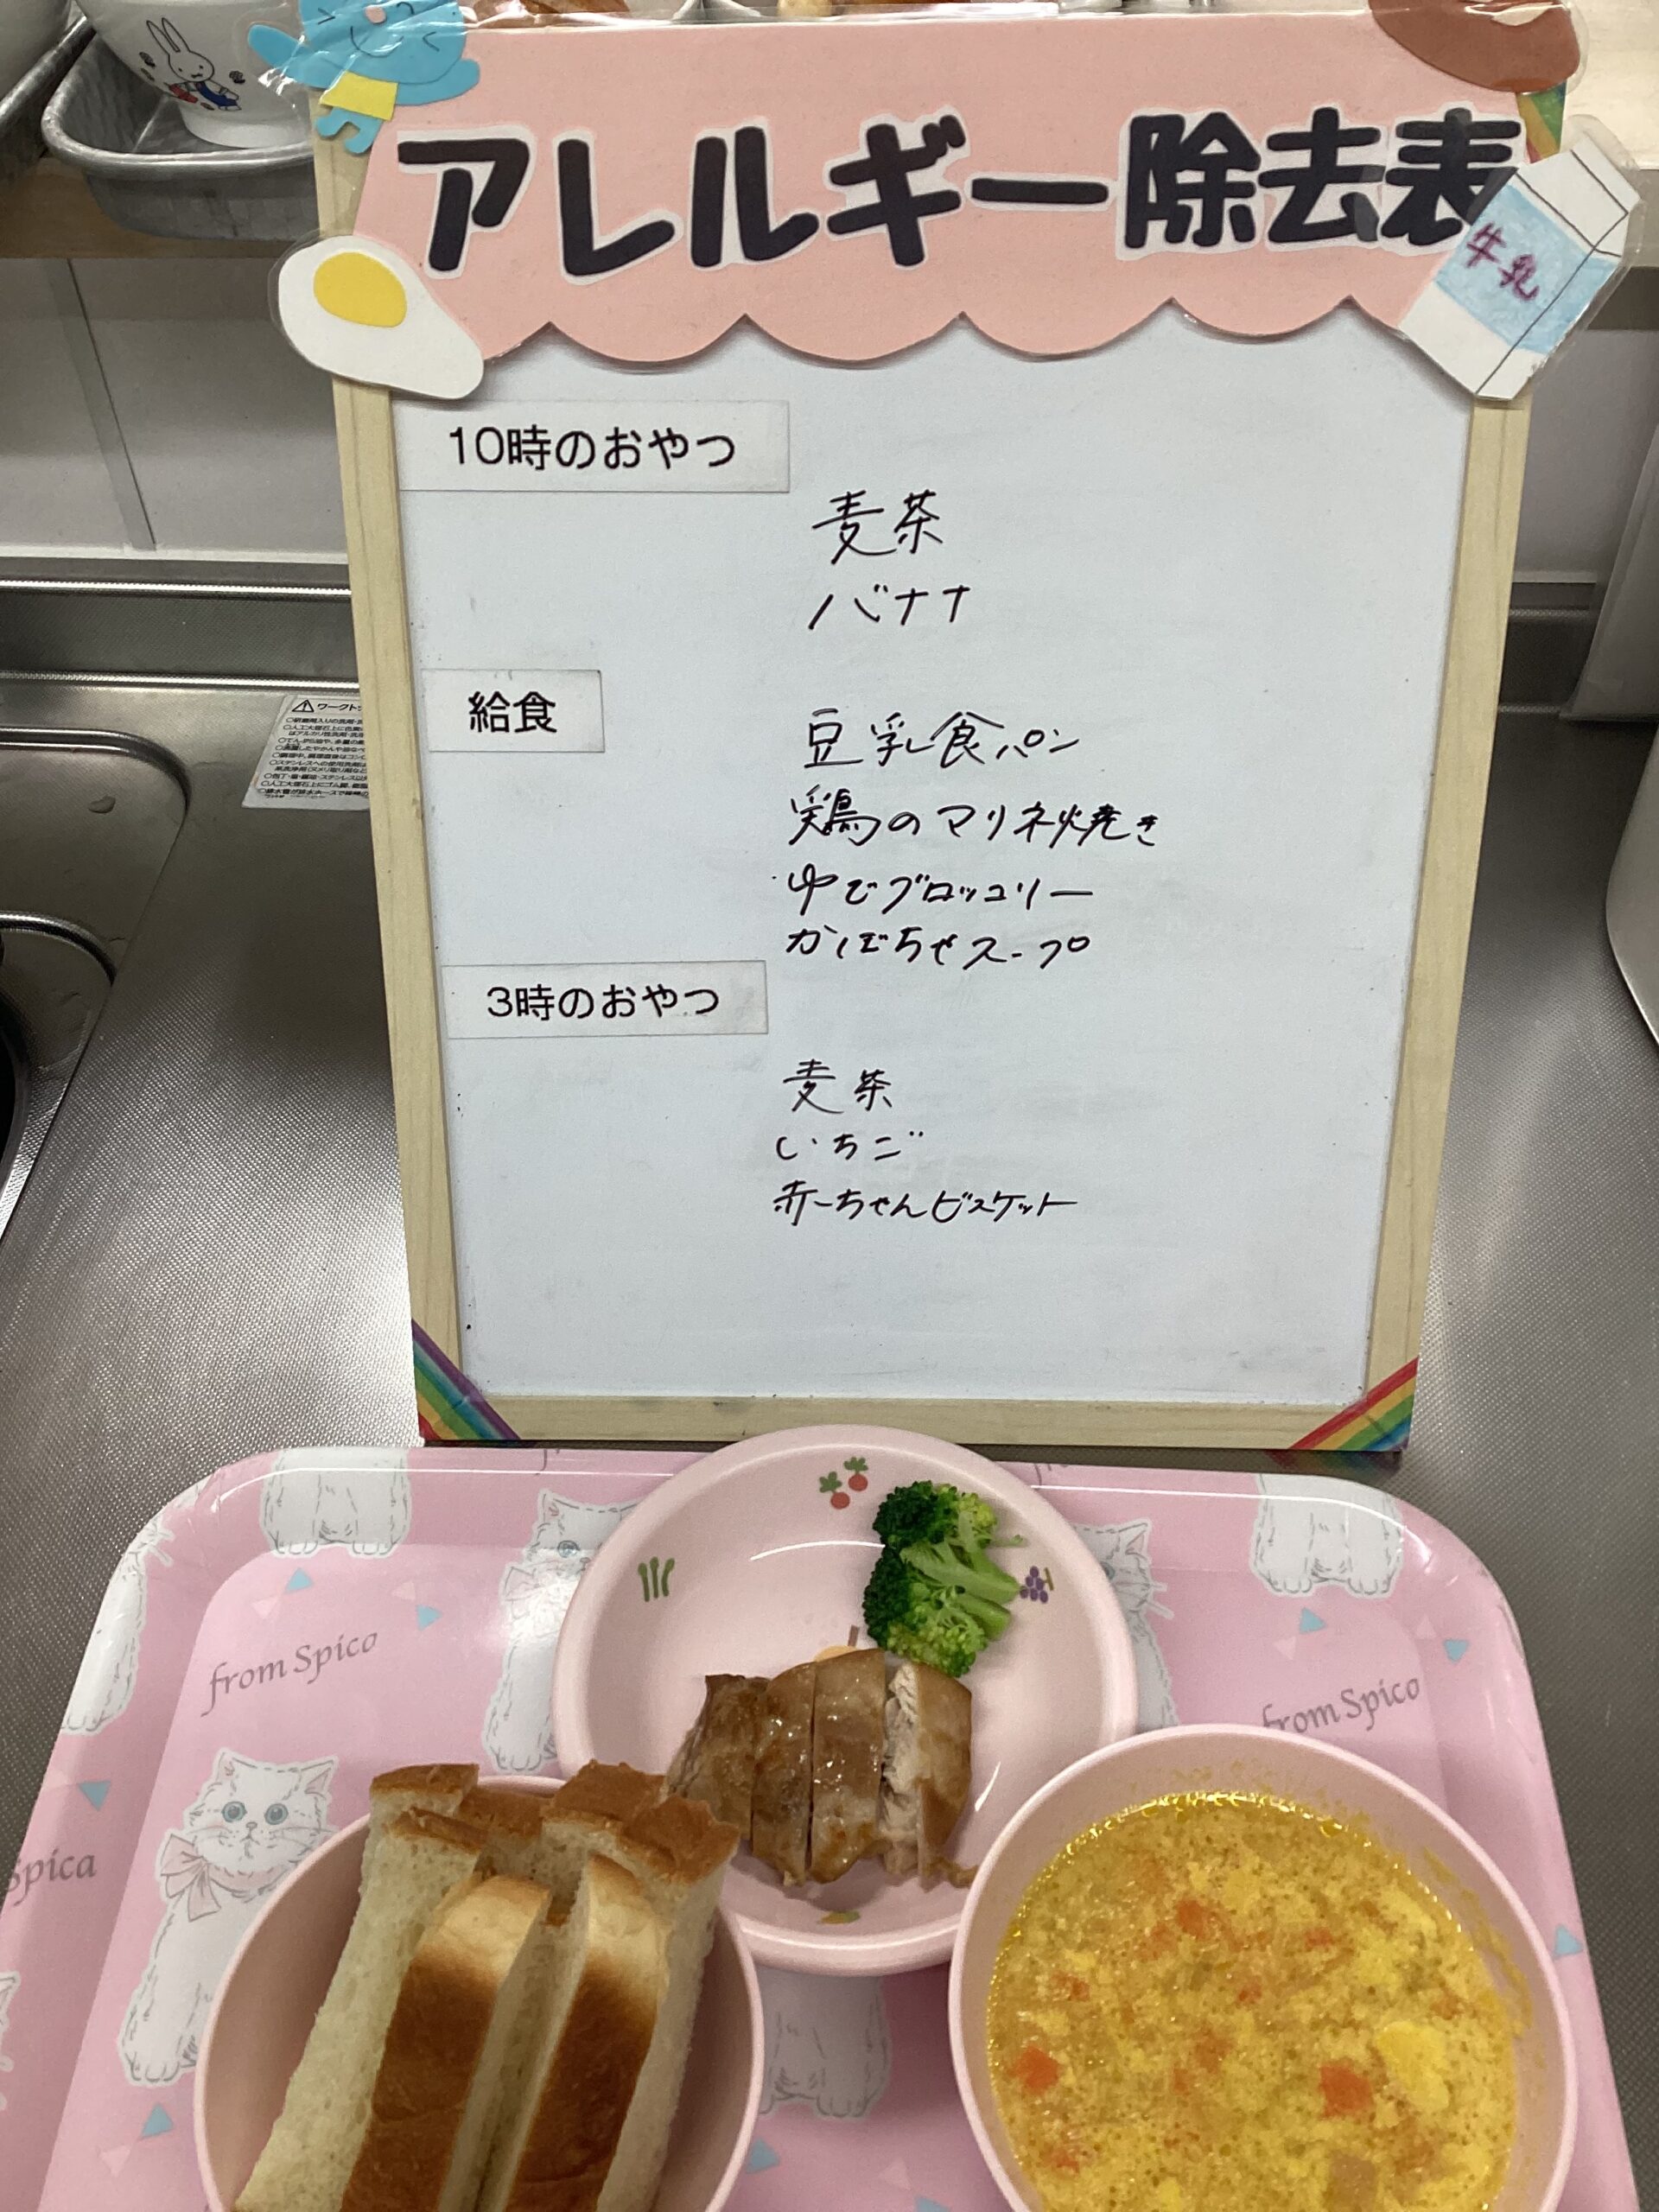 アレルギー除去表
牛乳
10時のおやつ
麦茶
バナナ
給食
豆乳食パン
鶏のマリネ焼き
ゆでブロッコリー
かぼちゃスープ
3時のおやつ
麦茶
いちご
赤ちゃんビスケット
from Spico
from Spico
Spica